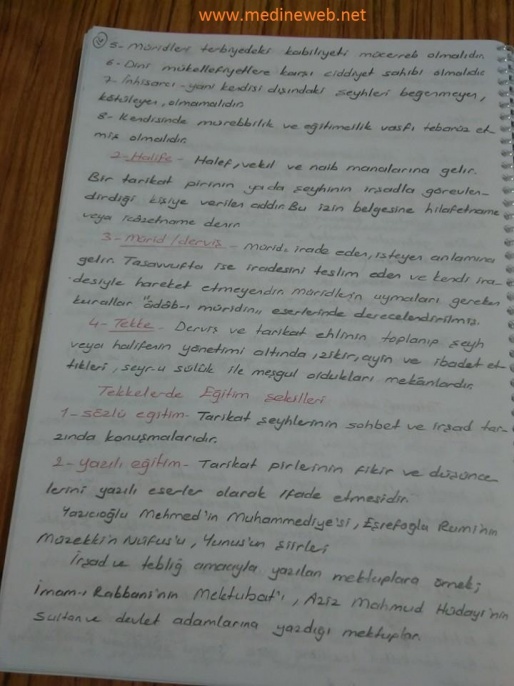 www.medineweb.net
5- Müridleri terbiyedeki kabiliyeti mücerreb olmalıdır.
6- Dini mükellefiyetlere karşı ciddiyet sahibi olmalıdır
7- İnhisarcı - yani kendisi dışındaki şeyhleri beğenmeyen,
kötüleyen, olmamalıdır.
8- Kendisinde mürebbilik ve eğitimcilik vasfı tebarüz et-
miş olmalıdır.
2- Halife - Halef, vekil ve naib manalarına gelir.
Bir tarikat pirinin ya da şeyhinin irşadla görevlen-
dirdiği kişiye verilen addır. Bu izin belgesine hilafetname
veya icazetname denir
3- mürid/derviş - mürid, irade eden, isteyen anlamına
gelir. Tasavvufta ise iradesini teslim eden ve kendi ira-
desiyle hareket etmeyendir. müridlerin uymaları gereken
kurallar "âdâb-ı müridin" eserlerinde derecelendirilmiş.
4- Tekke - Derviş ve tarikat ehlinin toplanıp şeyh
veya halifenin yönetimi altında, zikir, ayin ve ibadet et-
tikleri, seyr-u sülûk ile meşgul oldukları mekanlardır.
Tekkelerde Eğitim şekilleri
1- sözlü eğitim - Tarikat şeyhlerinin sohbet ve irşad tar-
zında konuşmalarıdır.
2- yazılı eğitim - Tarikat pirlerinin fikir ve düşünce-
lerini yazılı eserler olarak ifade etmesidir.
Yazıcıoğlu Mehmed'in Muhammediye'si, Eşrefoğlu Rumi'nin
Müzekkin Nüfus'u, Yunus'un şiirleri
İrşad ve tebliğ amacıyla yazılan mektuplara örnek;
İmam-ı Rabbani'nin Mektubat'ı, Aziz Mahmud Hüdayi'nin
Sultan ve devlet adamlarına yazdığı mektuplar.